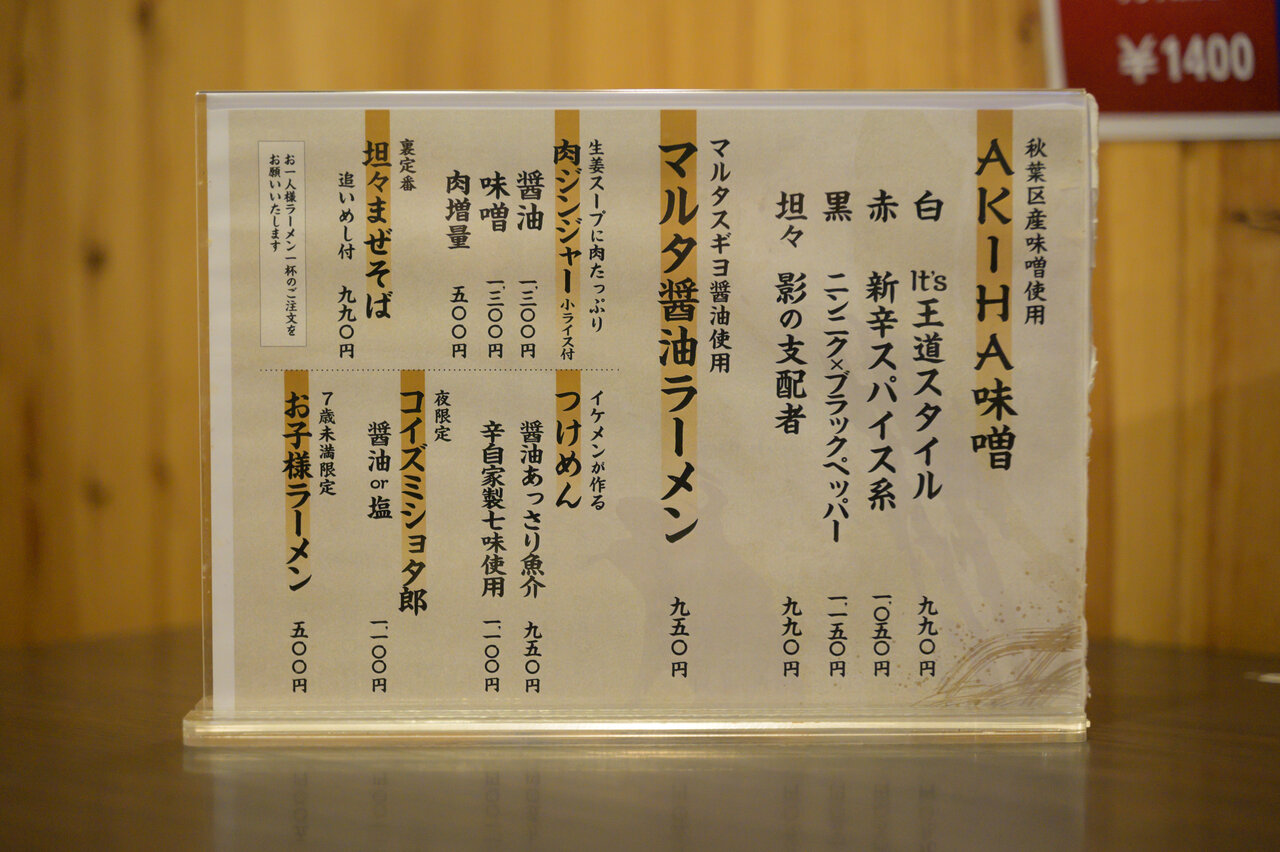 秋葉区産味噌使用
AKIHA味噌
白 It's王道スタイル 九九〇円
赤 新辛スパイス系 一、〇五〇円
黒 ニンニク×ブラックペッパー 一、一五〇円
坦々 影の支配者 九九〇円
マルタスギヨ醤油使用
マルタ醤油ラーメン 九五〇円
生姜スープに肉たっぷり
肉ジンジャー 小ライス付
醤油 一、三〇〇円
味噌 一、三〇〇円
肉増量 五〇〇円
裏定番
坦々まぜそば
追いめし付 九九〇円
お一人様ラーメン一杯のご注文を
お願いいたします
イケメンが作る
つけめん
醤油あっさり魚介 九五〇円
辛自家製七味使用 一、一〇〇円
夜限定
コイズミショタ郎
醤油or塩 一、一〇〇円
7歳未満限定
お子様ラーメン 五〇〇円
¥1400